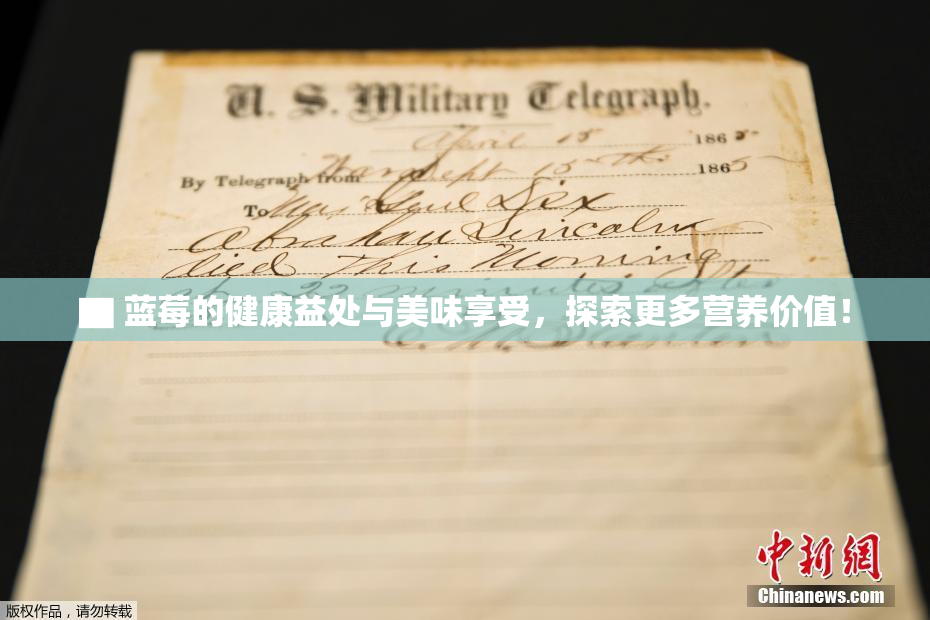 U. S. Military Telegraph.
April 15 1865
By Telegraph from War Dept 15th 1865
To Maj Genl Dix
Abraham Lincoln
died this Morning
22 minutes after
蓝莓的健康益处与美味享受，探索更多营养价值！
E. M. Stanton
中新网
Chinanews.com
版权作品，请勿转载